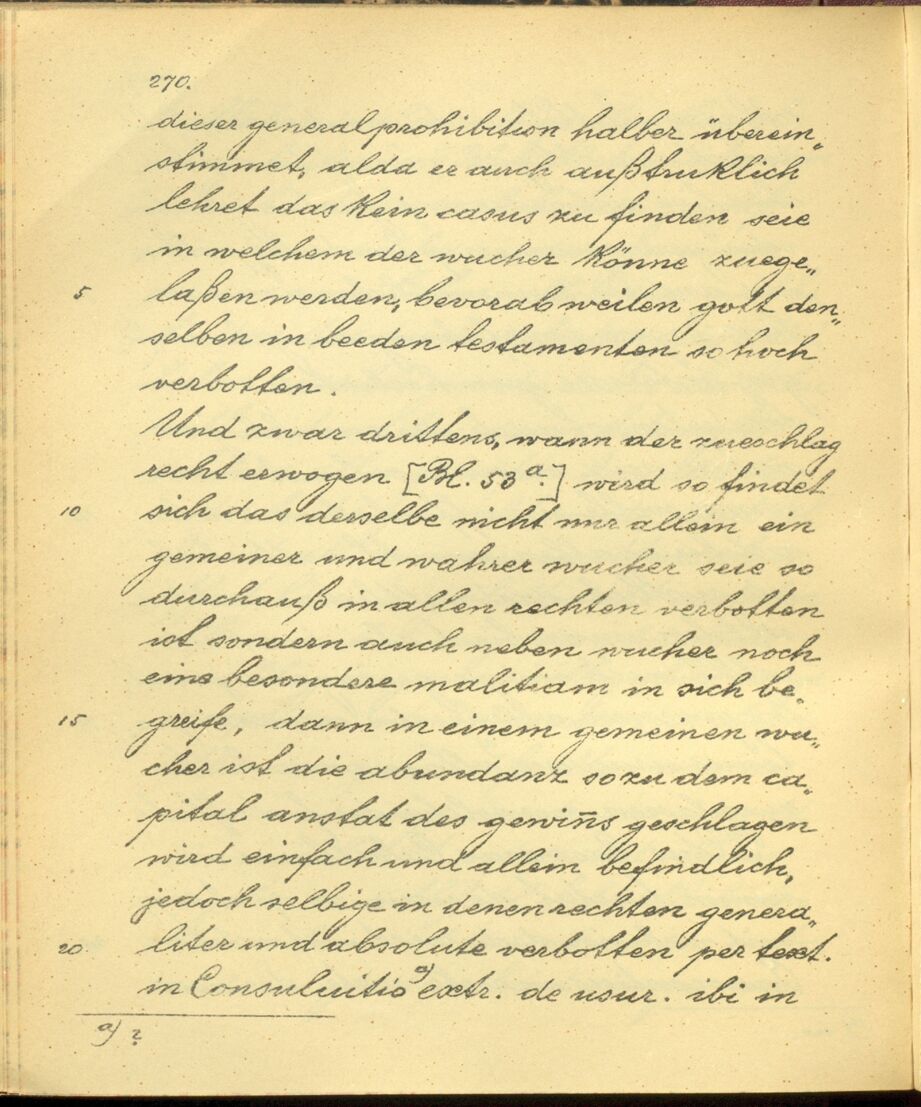 270.
dieser generalprohibition halber überein„
stimmet, alda er auch außtruklich
lehret das kein casus zu finden seie
in welchem der wucher könne zuege„
5 laßen werden, bevorab weilen gott den„
selben in beeden testamenten so hoch
verbotten.
Und zwar drittens, wann der zueschlag
recht erwogen [Bl. 53a.] wird so findet
10 sich das derselbe nicht nur allein ein
gemeiner und wahrer wucher seie so
durchauß in allen rechten verbotten
ist sondern auch neben wucher noch
eine besondere malitiam in sich be„
15 greife, dann in einem gemeinen wu„
cher ist die abundanz so zu dem ca„
pital anstat des gewin̄s geschlagen
wird einfach und allein befindlich,
jedoch selbige in denen rechten genera„
20 liter und absolute verbotten per text.
in Consuluitio a) extr. de usur. ibi in
a) ?